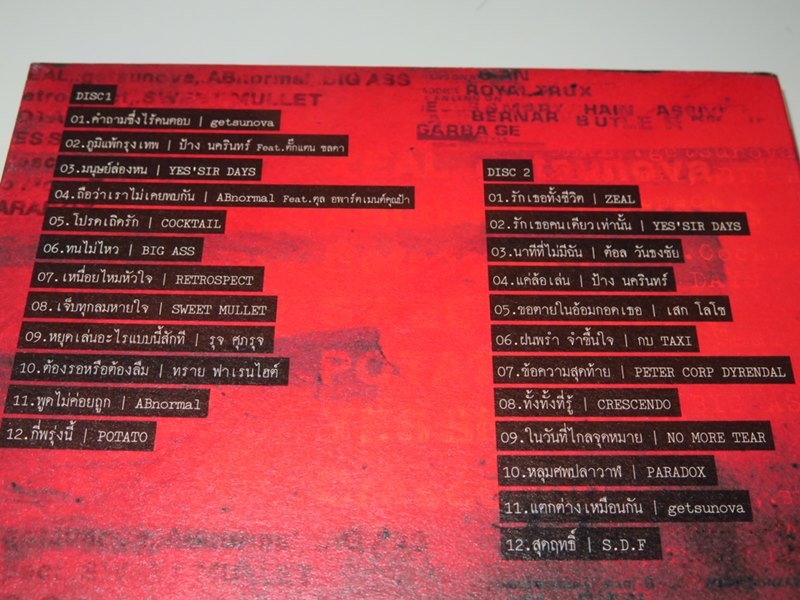 AL..getsunova,.ABnormal..BIG ASS
SWEET MULLET
ROYAL TRUX
HAIN
BERNAR BUTLER
GARBAGE
DISC1
01.คำถามซึ่งไร้คนตอบ | getsunova
02.ภูมิแพ้กรุงเทพ | ป้าง นครินทร์ Feat.ตั๊กแตน ชลดา
03.มนุษย์ล่องหน | YES'SIR DAYS
04.ถือว่าเราไม่เคยพบกัน | ABnormal Feat.ตุล อพาร์ตเมนต์คุณป้า
05.โปรดเถิดรัก | COCKTAIL
06.ทนไม่ไหว | BIG ASS
07.เหนื่อยไหมหัวใจ | RETROSPECT
08.เจ็บทุกลมหายใจ | SWEET MULLET
09.หยุดเล่นอะไรแบบนี้สักที | รุจ ศุภรุจ
10.ต้องรอหรือต้องลืม | ทราย ฟาเรนไฮต์
11.พูดไม่ค่อยถูก | ABnormal
12.กี่พรุ่งนี้ | POTATO
DISC 2
01.รักเธอทั้งชีวิต | ZEAL
02.รักเธอคนเดียวเท่านั้น | YES'SIR DAYS
03.นาทีที่ไม่มีฉัน | ต้อล วันธงชัย
04.แค่ล้อเล่น | ป้าง นครินทร์
05.ขอตายในอ้อมกอดเธอ | เสก โลโซ
06.ฝนพรำ จำขึ้นใจ | กบ TAXI
07.ข้อความสุดท้าย | PETER CORP DYRENDAL
08.ทั้งทั้งที่รู้ | CRESCENDO
09.ในวันที่ไกลจุดหมาย | NO MORE TEAR
10.หลุมศพปลาวาฬ | PARADOX
11.แตกต่างเหมือนกัน | getsunova
12.สุดฤทธิ์ | S.D.F